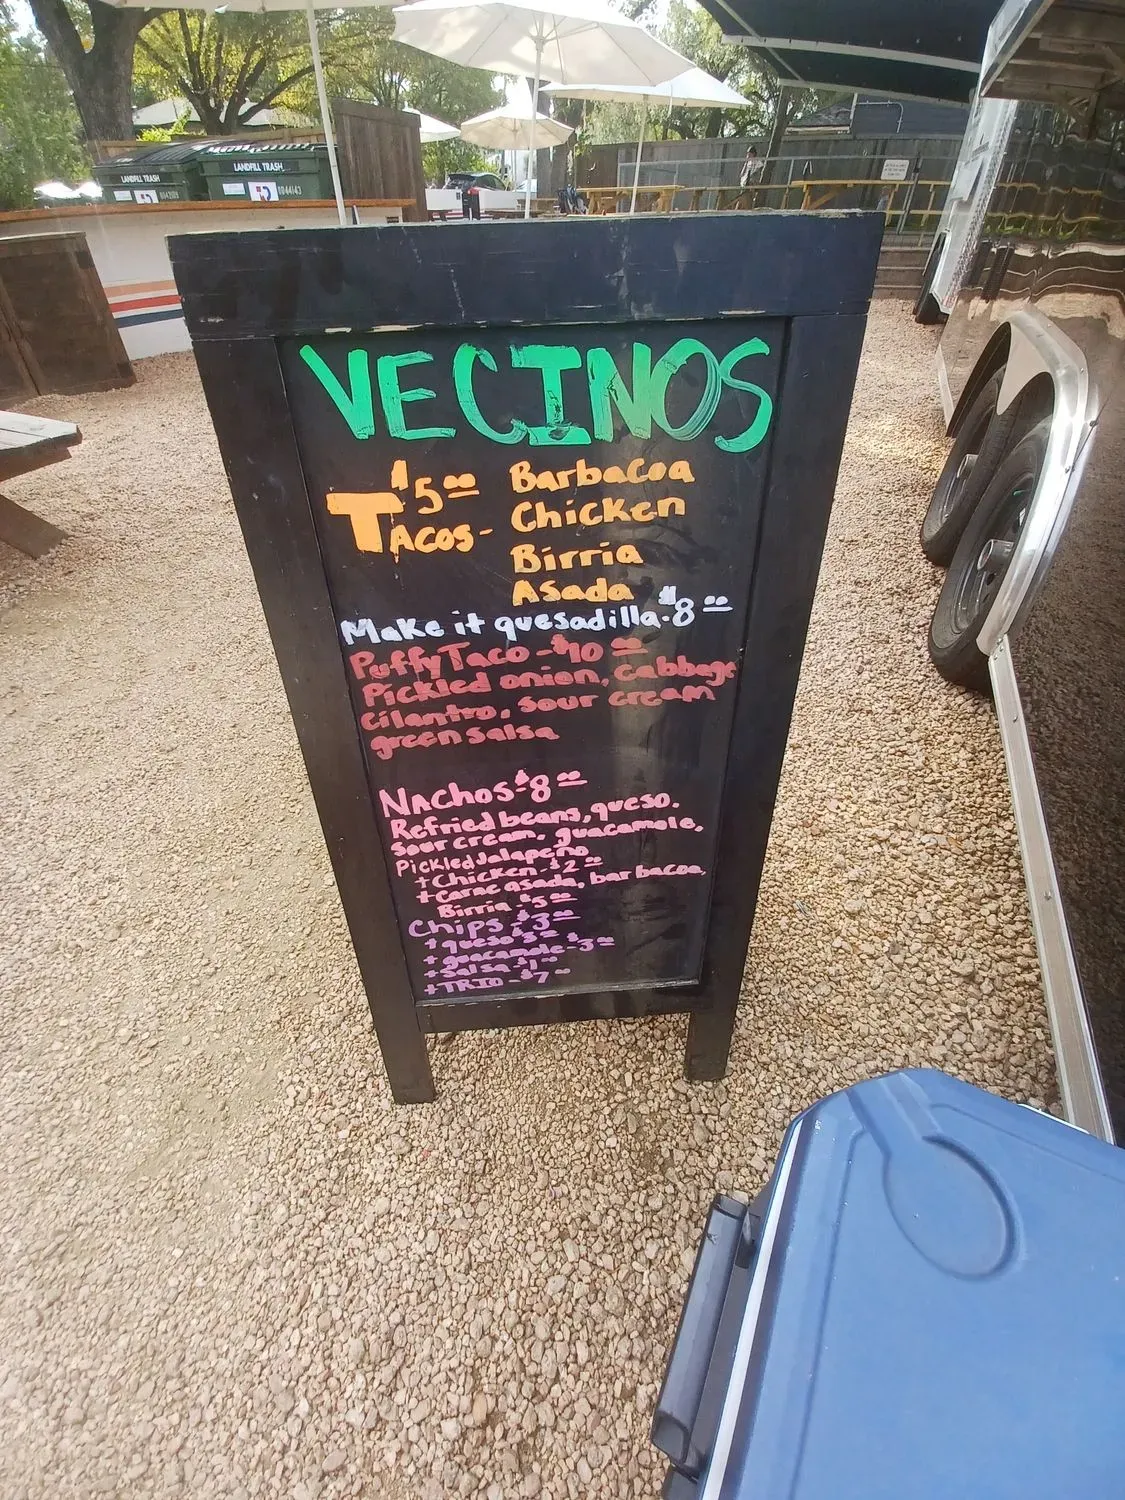 LANDFILL TRASH
LANDFILL TRASH
VECINOS
$5.00 Barbacoa
TACOS- Chicken
Birria
Asada
Make it quesadilla-$8.00
Puffy Taco-$10.00
Pickled onion, cabbage
cilantro, sour cream
green salsa
Nachos-$8.00
Refried beans, queso.
Sour cream, guacamole,
Pickled Jalapeño
+Chicken-$2.00
+Carne asada, barbacoa,
Birria-$5.00
Chips $3.00
+queso $3.00
+guacamole-$3.00
+salsa $1.00
+TRIO-$7.00